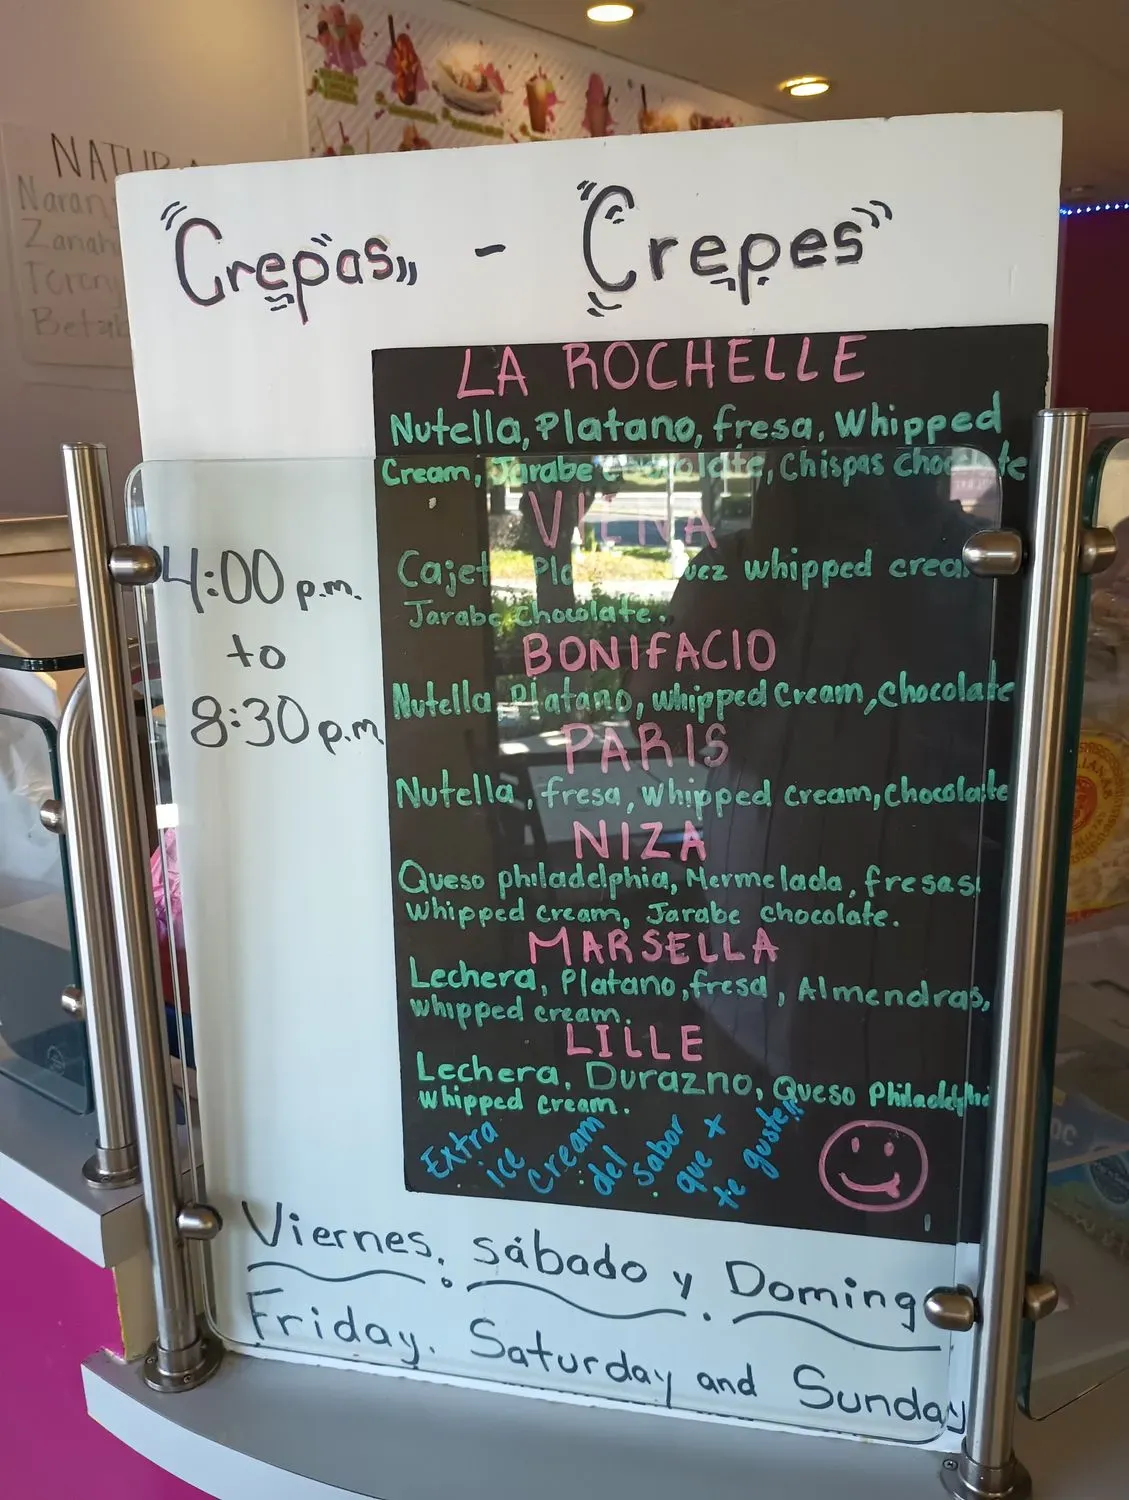 Crepas - Crepes
LA ROCHELLE
Nutella, Platano, fresa, Whipped
Cream, Jarabe chocolate, Chispas chocolate
VIENA
Cajeta whipped
Jarabe chocolate.
BONIFACIO
Nutella Platano, whipped Cream, Chocolate
PARIS
Nutella, fresa, whipped cream, chocolate
NIZA
Queso philadelphia, Mermelada, fresas
whipped cream, Jarabe chocolate.
MARSELLA
Lechera, Platano, fresa, Almendras,
whipped cream.
LILLE
Lechera, Durazno, Queso Philadelphia
whipped cream.
Extra ice cream del sabor que + te guste!!
4:00 p.m.
to
8:30 p.m.
Viernes, sábado y Domingo
Friday, Saturday and Sunday